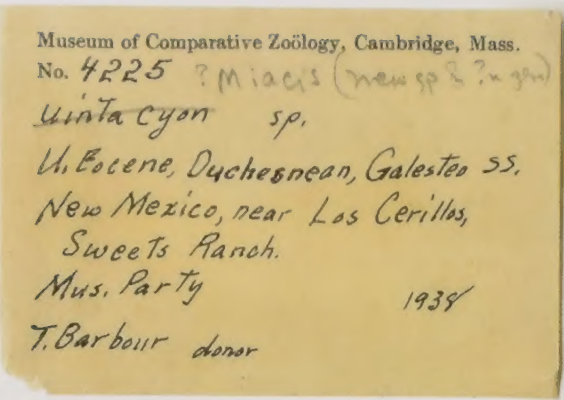 Museum of Comparative Zoölogy, Cambridge, Mass.
No. 4225 ? Miacis (new sp & ? n gen)
Uintacyon sp.
U. Eocene, Duchesnean, Galesteo ss.
New Mexico, near Los Cerillos,
Sweets Ranch.
Mus. Party 1938
T. Barbour donor